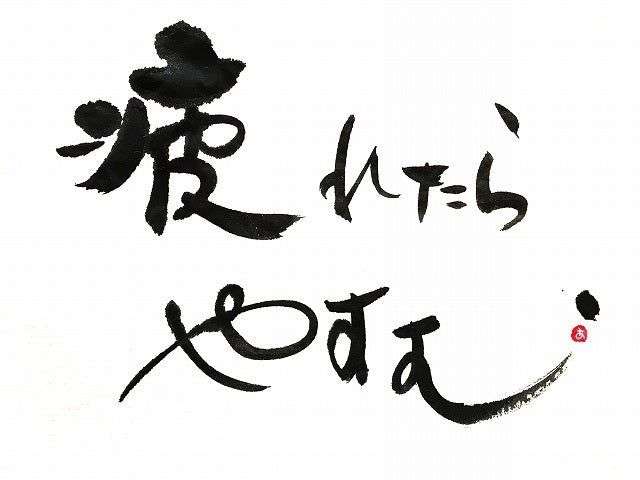 疲れたら
やすむ
あ